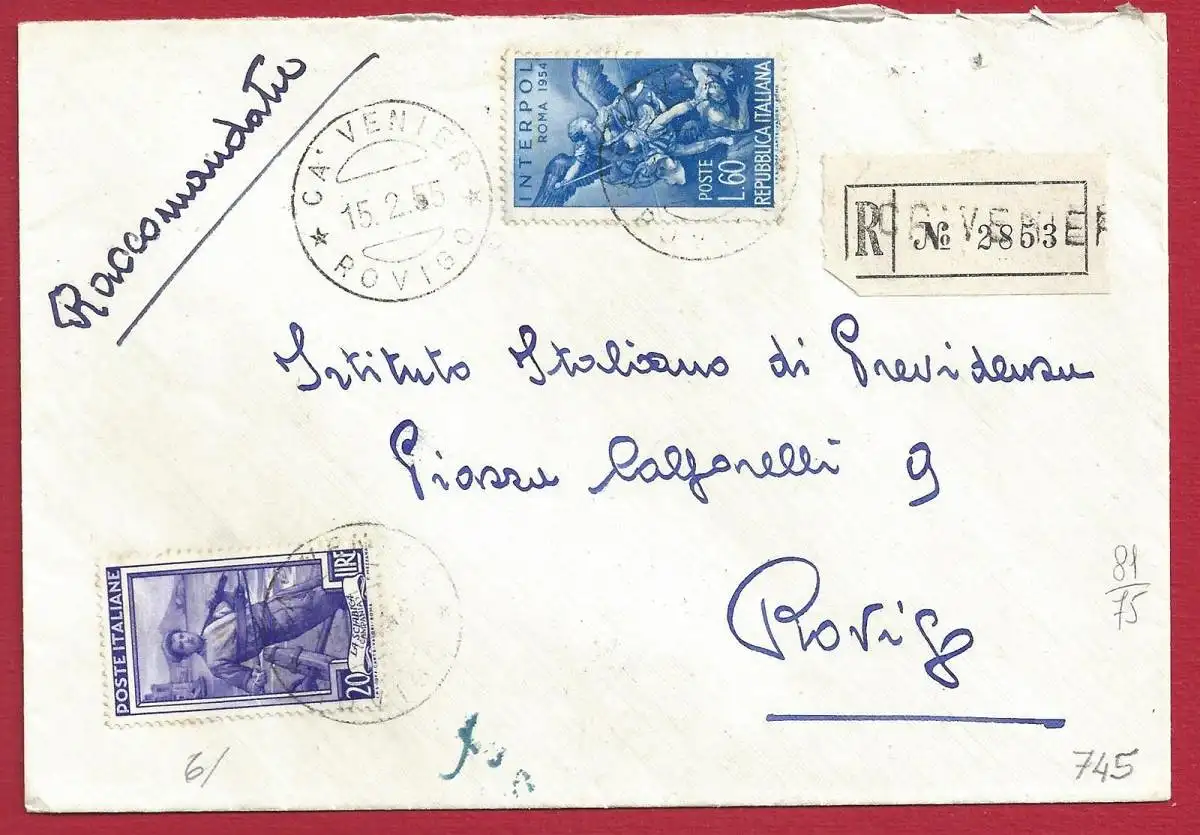 Raccomandata
CA' VENIER
15.2.55
ROVIGO
INTERPOL
ROMA 1954
POSTE
L.60
REPUBBLICA ITALIANA
R
CA' VENIER
№ 2853
Istituto Italiano di Previdenza
Piazza Calzonelli 9
Rovigo
POSTE ITALIANE
20
LIRE
LA SCIABICA
CAMPANIA
81
75
6/
745